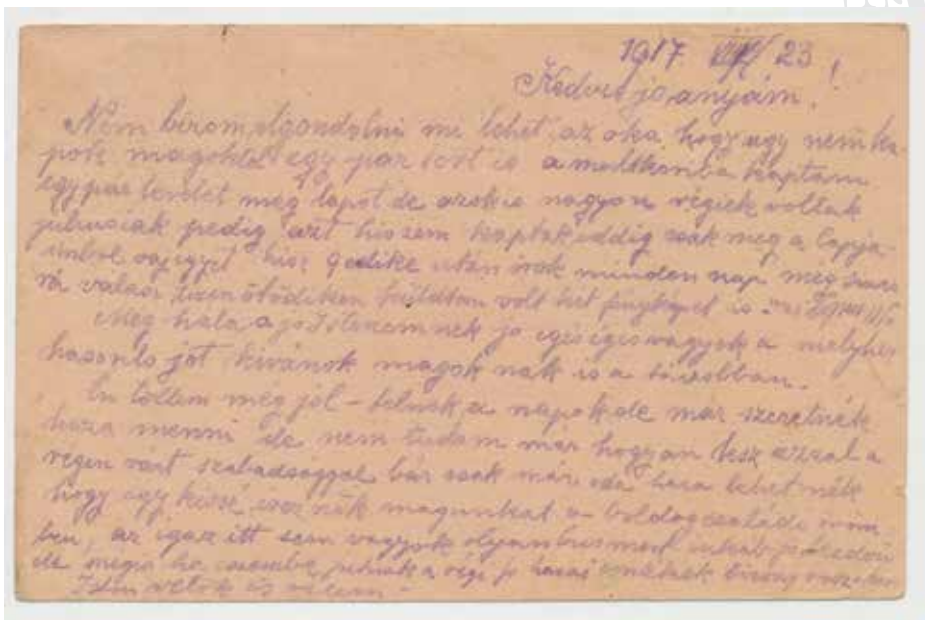 1917 VIII/23
Kedves jo anyám!
Nem birom elgondolni mi lehet az oka, hogy ugy nem ka-
pok magoktol egy par sort is a multkoriba kaptam
egypar levelet meg lapot de azok is nagyon régiek voltak
juliusiak pedig azt hiszem kaptak eddig csak meg a lapja-
imbol vajegyet hisz 9edike után irok minden nap meg
rá válasz tizenötödikén küldtem volt két fényképet is
Meg hala a jo Istenemnek jo egeségesvagyok a melyhez
hasonlo jót kivánok magoknak is a távolban.
Én töllem még jol telnek a napok de már szeretnék
haza menni de nem tudom már hogyan lesz azzal a
régen várt szabadsággal bár csak már oda haza lehetnék
hogy egy kissé magunkat a boldog családi
ben, az igaz itt sem vagyok olyan inkáb jo kedvü
de mégis ha eszembe jutnak a régi jo hazai
Isten velök és velem